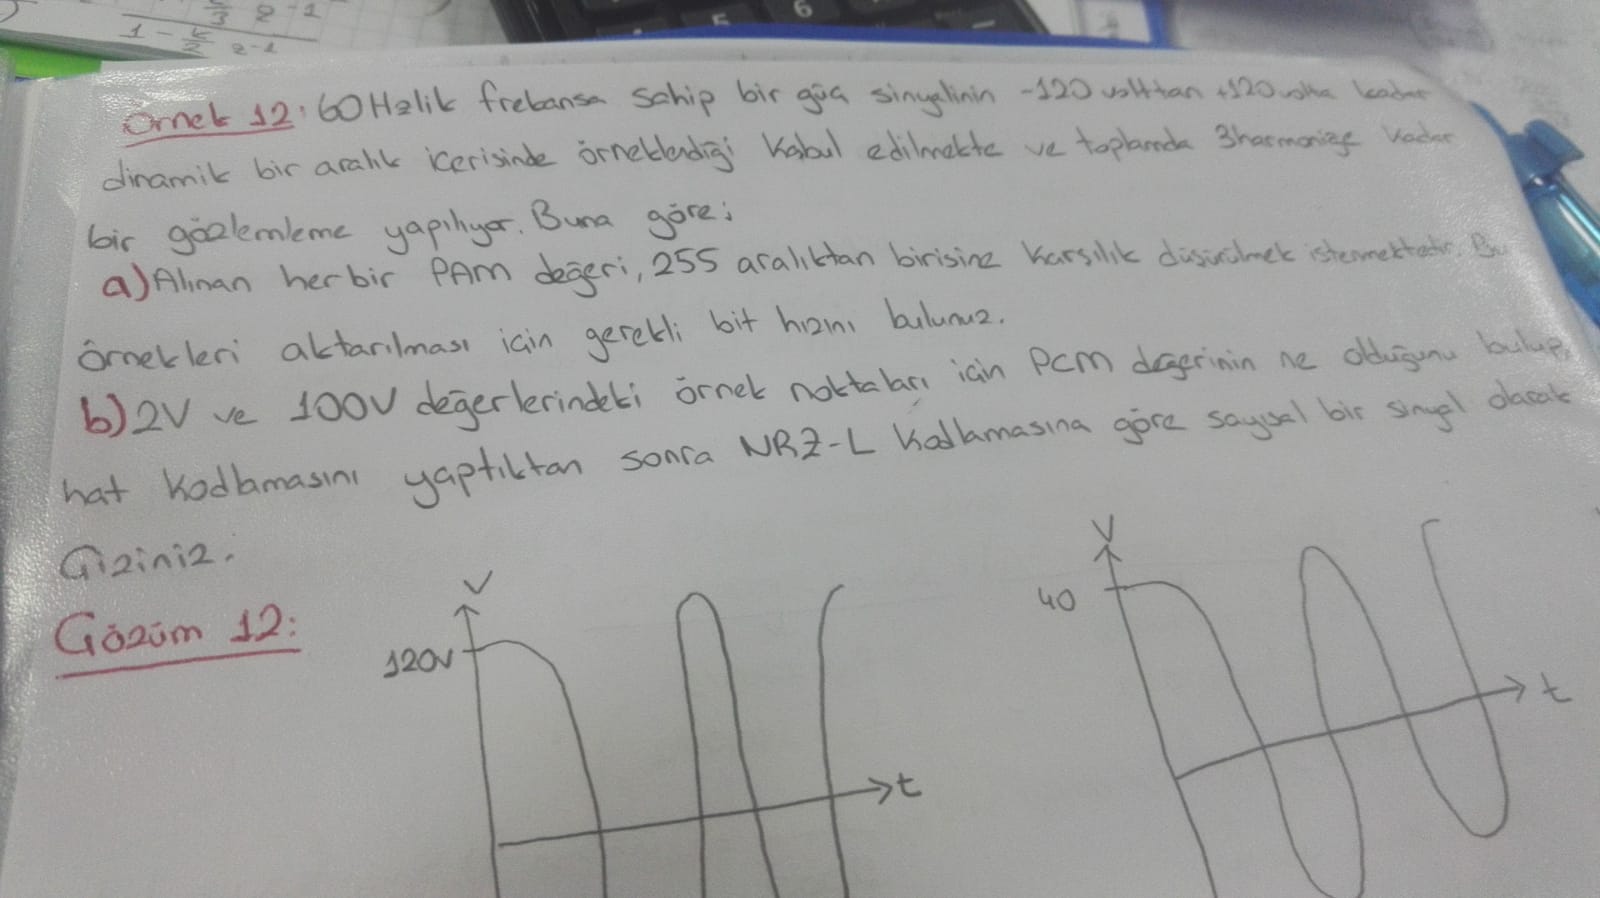 1 - k/2 z-1
k/3 z-1
5 6
Örnek 12: 60 Hzlik frekansa sahip bir güç sinyalinin -120 volttan +120 volta kadar
dinamik bir aralık içerisinde örneklendiği kabul edilmekte ve toplamda 3 harmoniğe kadar
bir gözlemleme yapılıyor. Buna göre;
a) Alınan her bir PAM değeri, 255 aralıktan birisine karşılık düşürülmek istenmektedir. Bu
örnekleri aktarılması için gerekli bit hızını bulunuz.
b) 2V ve 100V değerlerindeki örnek noktaları için PCM değerinin ne olduğunu bulup,
hat kodlamasını yaptıktan sonra NRZ-L kodlamasına göre sayısal bir sinyal olarak
Çiziniz.
Çözüm 12:
V
120V
t
V
40
t